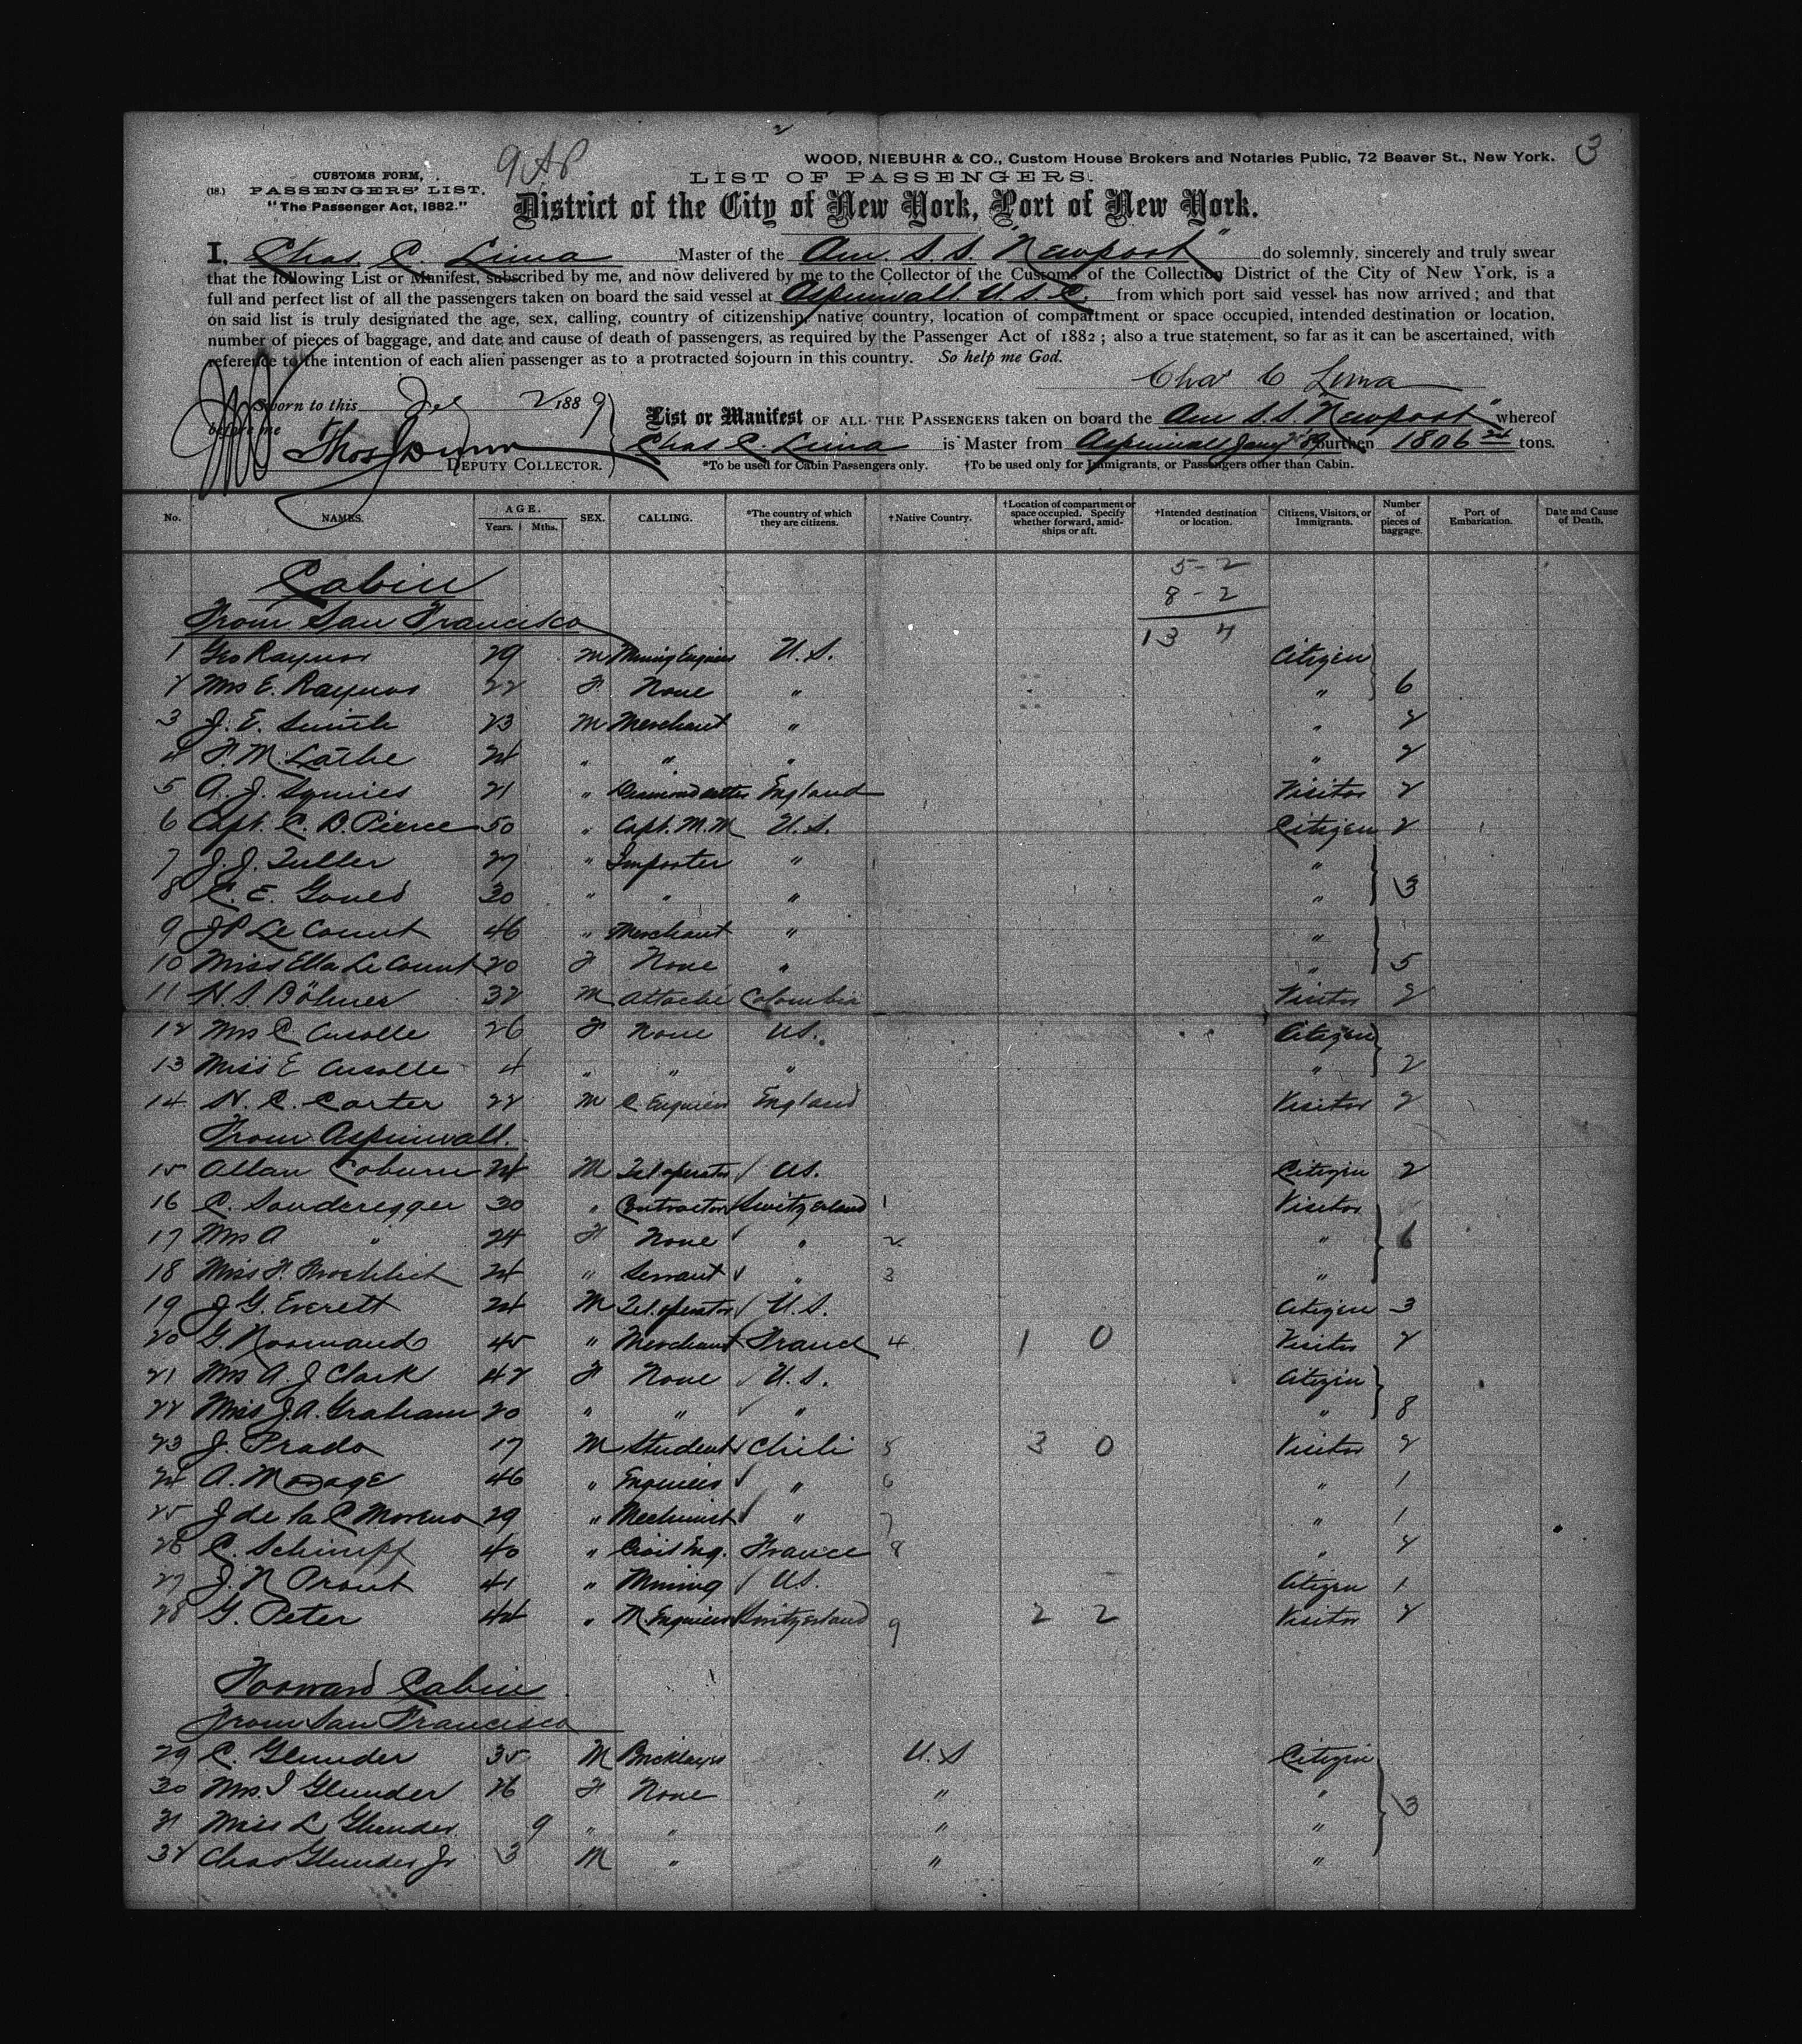 3
WOOD, NIEBUHR & CO., Custom House Brokers and Notaries Public, 72 Beaver St., New York.
(18.) CUSTOMS FORM,
PASSENGERS' LIST.
"The Passenger Act, 1882."
LIST OF PASSENGERS.
District of the City of New York, Port of New York.
I, Chas. C. Lima Master of the Am. S. S. "Newport" do solemnly, sincerely and truly swear
that the following List or Manifest, subscribed by me, and now delivered by me to the Collector of the Customs of the Collection District of the City of New York, is a
full and perfect list of all the passengers taken on board the said vessel at Aspinwall. U. S. C. from which port said vessel has now arrived; and that
on said list is truly designated the age, sex, calling, country of citizenship, native country, location of compartment or space occupied, intended destination or location,
number of pieces of baggage, and date and cause of death of passengers, as required by the Passenger Act of 1882; also a true statement, so far as it can be ascertained, with
reference to the intention of each alien passenger as to a protracted sojourn in this country. So help me God.
Chas C Lima
Sworn to this 2 1889
before me
Thos J Dunn
DEPUTY COLLECTOR.
List or Manifest OF ALL THE PASSENGERS taken on board the Am S.S. "Newport" whereof
Chas C. Lima is Master from Aspinwall burthen 1806 tons.
*To be used for Cabin Passengers only. †To be used only for Immigrants, or Passengers other than Cabin.
No. NAMES. AGE. Years. Mths. SEX. CALLING. *The country of which they are citizens. †Native Country. †Location of compartment or space occupied. Specify whether forward, amidships or aft. †Intended destination or location. Citizens, Visitors, or Immigrants. Number of pieces of baggage. Port of Embarkation. Date and Cause of Death.
5-2
Cabin
8-2
From San Francisco
13 4
1 Geo Raynor 29 M Mining Engineer U.S. Citizen
2 Mrs E. Raynor 22 F None " " 6
3 J. E. Smith 23 M Merchant " " 2
4 F. M. Lathe 24 " " " " 2
5 A. J. Squires 21 " Diamond cutter England Visitor 2
6 Capt. C. B. Pierce 50 " Capt. M.M U.S. Citizen 2
7 J. J. Fuller 27 " Importer " "
8 C. E. Gould 30 " " " " 3
9 J P Le Count 46 " Merchant " "
10 Miss Ella Le Count 20 F None " " 5
11 H. S. Böhmer 32 M Attaché Colombia Visitor 2
12 Mrs C 26 F None U.S. Citizen
13 Miss E 4 " " " " 2
14 N. C. Carter 22 M C. Engineer England Visitor 2
From Aspinwall.
15 Allan Coburn 24 M Tel. operator U.S. Citizen 2
16 C. Sonderegger 30 " Contractor Switzerland 1 Visitor
17 Mrs A " 24 F None " 2 " 6
18 Miss F. Froehlich 24 " Servant " 3 "
19 J G. Everett 24 M Tel. operator U.S. Citizen 3
20 G. Normand 45 " Merchant France 4 1 0 Visitor 2
21 Mrs A. J Clark 42 F None U.S. Citizen
22 Miss J. A. Graham 20 " " " " 8
23 J. Prado 17 M Student Chili 5 3 0 Visitor 2
24 A. 46 " Engineer " 6 " 1
25 J de la C Moreno 29 " Mechinist " 7 " 1
26 C. Schimpf 40 " Civil Eng. France 8 " 4
27 J. N Prout 41 " Mining U.S. Citizen 1
28 G. Peter 44 " Engineer Switzerland 9 2 2 Visitor 4
Forward Cabin
From San Francisco
29 C. Glunder 35 M Bricklayer U.S Citizen
30 Mrs. I Glunder 26 F None " "
31 Miss L Glunder 9 " " " " 3
32 Chas Glunder Jr 3 M " " "